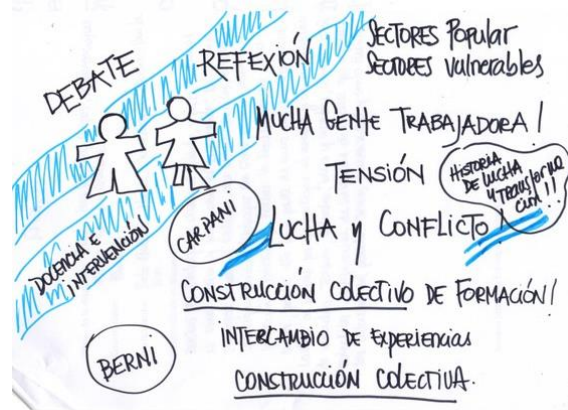 DEBATE
REFEXIÓN
SECTORES Popular
SECTORES vulnerables
MUCHA GENTE TRABAJADORA!
TENSIÓN
HISTORIA
DE LUCHA
Y TRANSFORMA
CIÓN!!
CARPANI
LUCHA y CONFLICTO
DOCENCIA E
INTERVENCIÓN
CONSTRUCCIÓN COLECTIVO DE FORMACIÓN!
BERNI
INTERCAMBIO DE Experiencias
CONSTRUCCIÓN COLECTIVA.